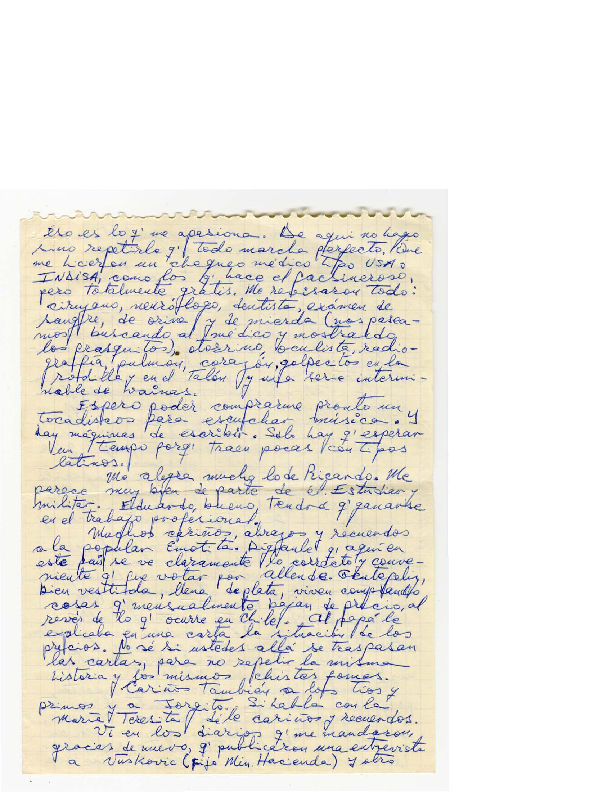 eso es lo q' me apasiona. De aquí no hago
sino repetirle q' todo marcha perfecto.
me hicieron un chequeo médico tipo USA o
INDISA, como los q' hace el facineroso,
pero totalmente gratis. Me revisaron todo:
cirujano, neurólogo, dentista, exámen de
sangre, de orina y de mierda (nos paseá-
mos buscando al médico y mostrando
los frasquitos), otorrino, oculista, radio-
graffía, pulmón, corazón, golpecitos en la
rodilla y en el talón y una serie intermi-
nable de vainas.
Espero poder comprarme pronto un
tocadiscos para escuchar música. Y
hay máquinas de escribir. Solo hay q' esperar
un tiempo porq' traen pocas con tipos
latinos.
Me alegra mucho lo de Ricardo. Me
parece muy bien de parte de él. Estudiar y
militar. Eduardo, bueno, tendrá q' ganarse
en el trabajo profesional.
Muchos cariños, abrazos y recuerdos
a la popular Emotita. Díganle q' aquí en
este país se ve claramente lo correcto y conve-
niente q' fue votar por Allende. Gente feliz,
bien vestida, llena de plata, viven comprando
cosas q' mensualmente bajan de precio, al
revés de lo q' ocurre en Chile. Al papá le
explicaba en una carta la situación de los
precios. No sé si ustedes allá se traspasan
las cartas, para no repetir la misma
historia y los mismos chistes fomes.
Cariños también a los tíos y
primos y a Jorgito. Si habla con la
María Teresita dele cariños y recuerdos.
Vi en los diarios q' me mandaron,
gracias de nuevo, q' publicaron una entrevista
a Vuskovic (fijo Min. Hacienda) y otro